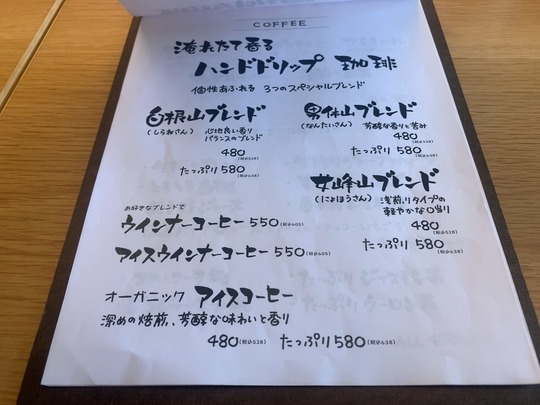 COFFEE
淹れたて香る
ハンドドリップ 珈琲
個性あふれる 3つのスペシャルブレンド
白根山ブレンド
(しらねさん) 心地良い香り
バランスのブレンド
480(税込528)
たっぷり 580(税込638)
男体山ブレンド
(なんたいさん) 芳醇な香りと苦み
480(税込528)
たっぷり 580(税込638)
女峰山ブレンド
(にょほうさん) 浅煎りタイプの
軽やかな口当り
480(税込528)
たっぷり 580(税込638)
お好きなブレンドで
ウインナーコーヒー 550(税込605)
アイスウインナーコーヒー 550(税込605)
オーガニック アイスコーヒー
深めの焙煎、芳醇な味わいと香り
480(税込528) たっぷり 580(税込638)